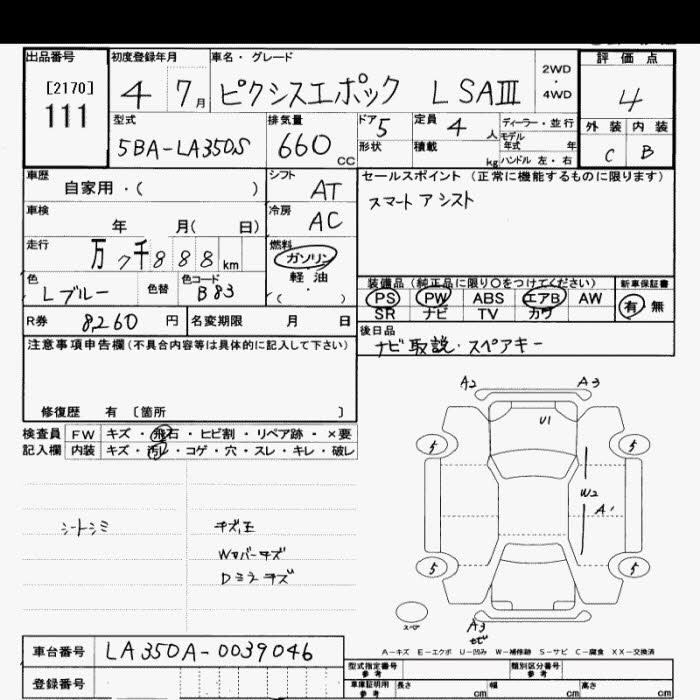 出品番号 初度登録年月 車名・グレード 評価点
[2170] 111
4 7月 ピクシスエポック L SAⅢ 2WD・4WD 4
型式 排気量 ドア 5 定員 4人 ディーラー・並行 外装 内装
5BA-LA350S 660CC 形状 積載 kg モデル年式 年 C B
ハンドル 左・右
車歴 シフト セールスポイント (正常に機能するものに限ります)
自家用・( ) AT スマートアシスト
車検 冷房
年 月( 日) AC
走行 燃料
万 7千888km ガソリン
軽油
色 色替 色コード ( ・ ) 装備品(純正品に限り○をつけてください) 新車保証書
Lブルー B83 PS PW ABS エアB AW 有 無
SR ナビ TV カワ
R券 8,260円 名変期限 月 日 後日品
ナビ取説・スペアキー
注意事項申告欄(不具合内容等は具体的に記入して下さい)
修復歴 有 〔箇所 〕
検査員 FW キズ・飛石・ヒビ割・リペア跡・×要
記入欄 内装 キズ・汚レ・コゲ・穴・スレ・キレ・破レ
A2 A3
U1
5 5
W2 A1
シートシミ
Wカバーキズ
Dミラキズ
5 5
スペア
A3
A-キズ E-エクボ U-凹み W-補修跡 S-サビ C-腐食 XX-交換済
車台番号 LA350A-0039046
登録番号
型式指定番号 参考 類別区分番号 参考
車庫証明用 参考 長さ cm 幅 cm 高さ cm